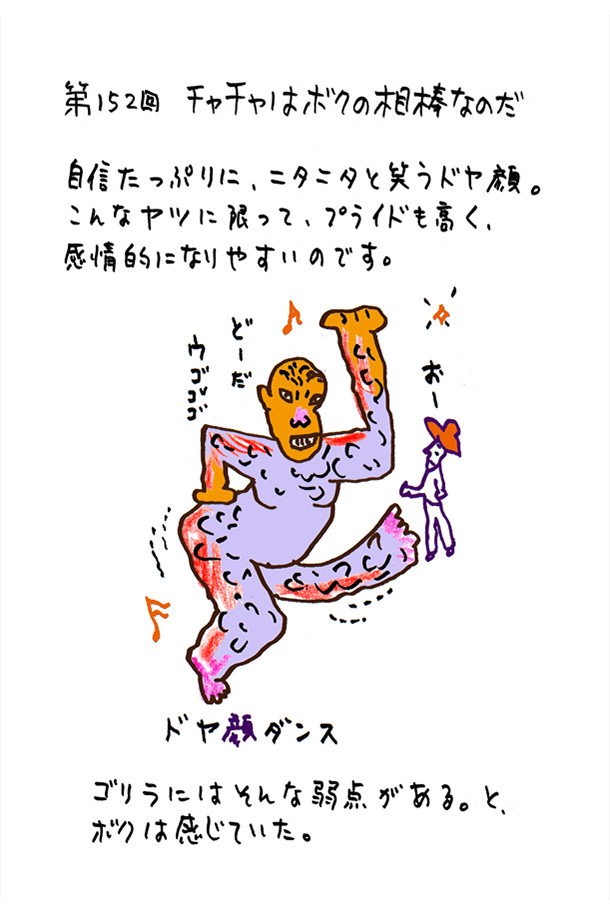 第152回 チャチャはボクの相棒なのだ
自信たっぷりに、ニタニタと笑うドヤ顔。
こんなヤツに限って、プライドも高く、
感情的になりやすいのです。
どーだ
ウゴゴゴ
おー
ドヤ顔ダンス
ゴリラにはそんな弱点がある。と、
ボクは感じていた。